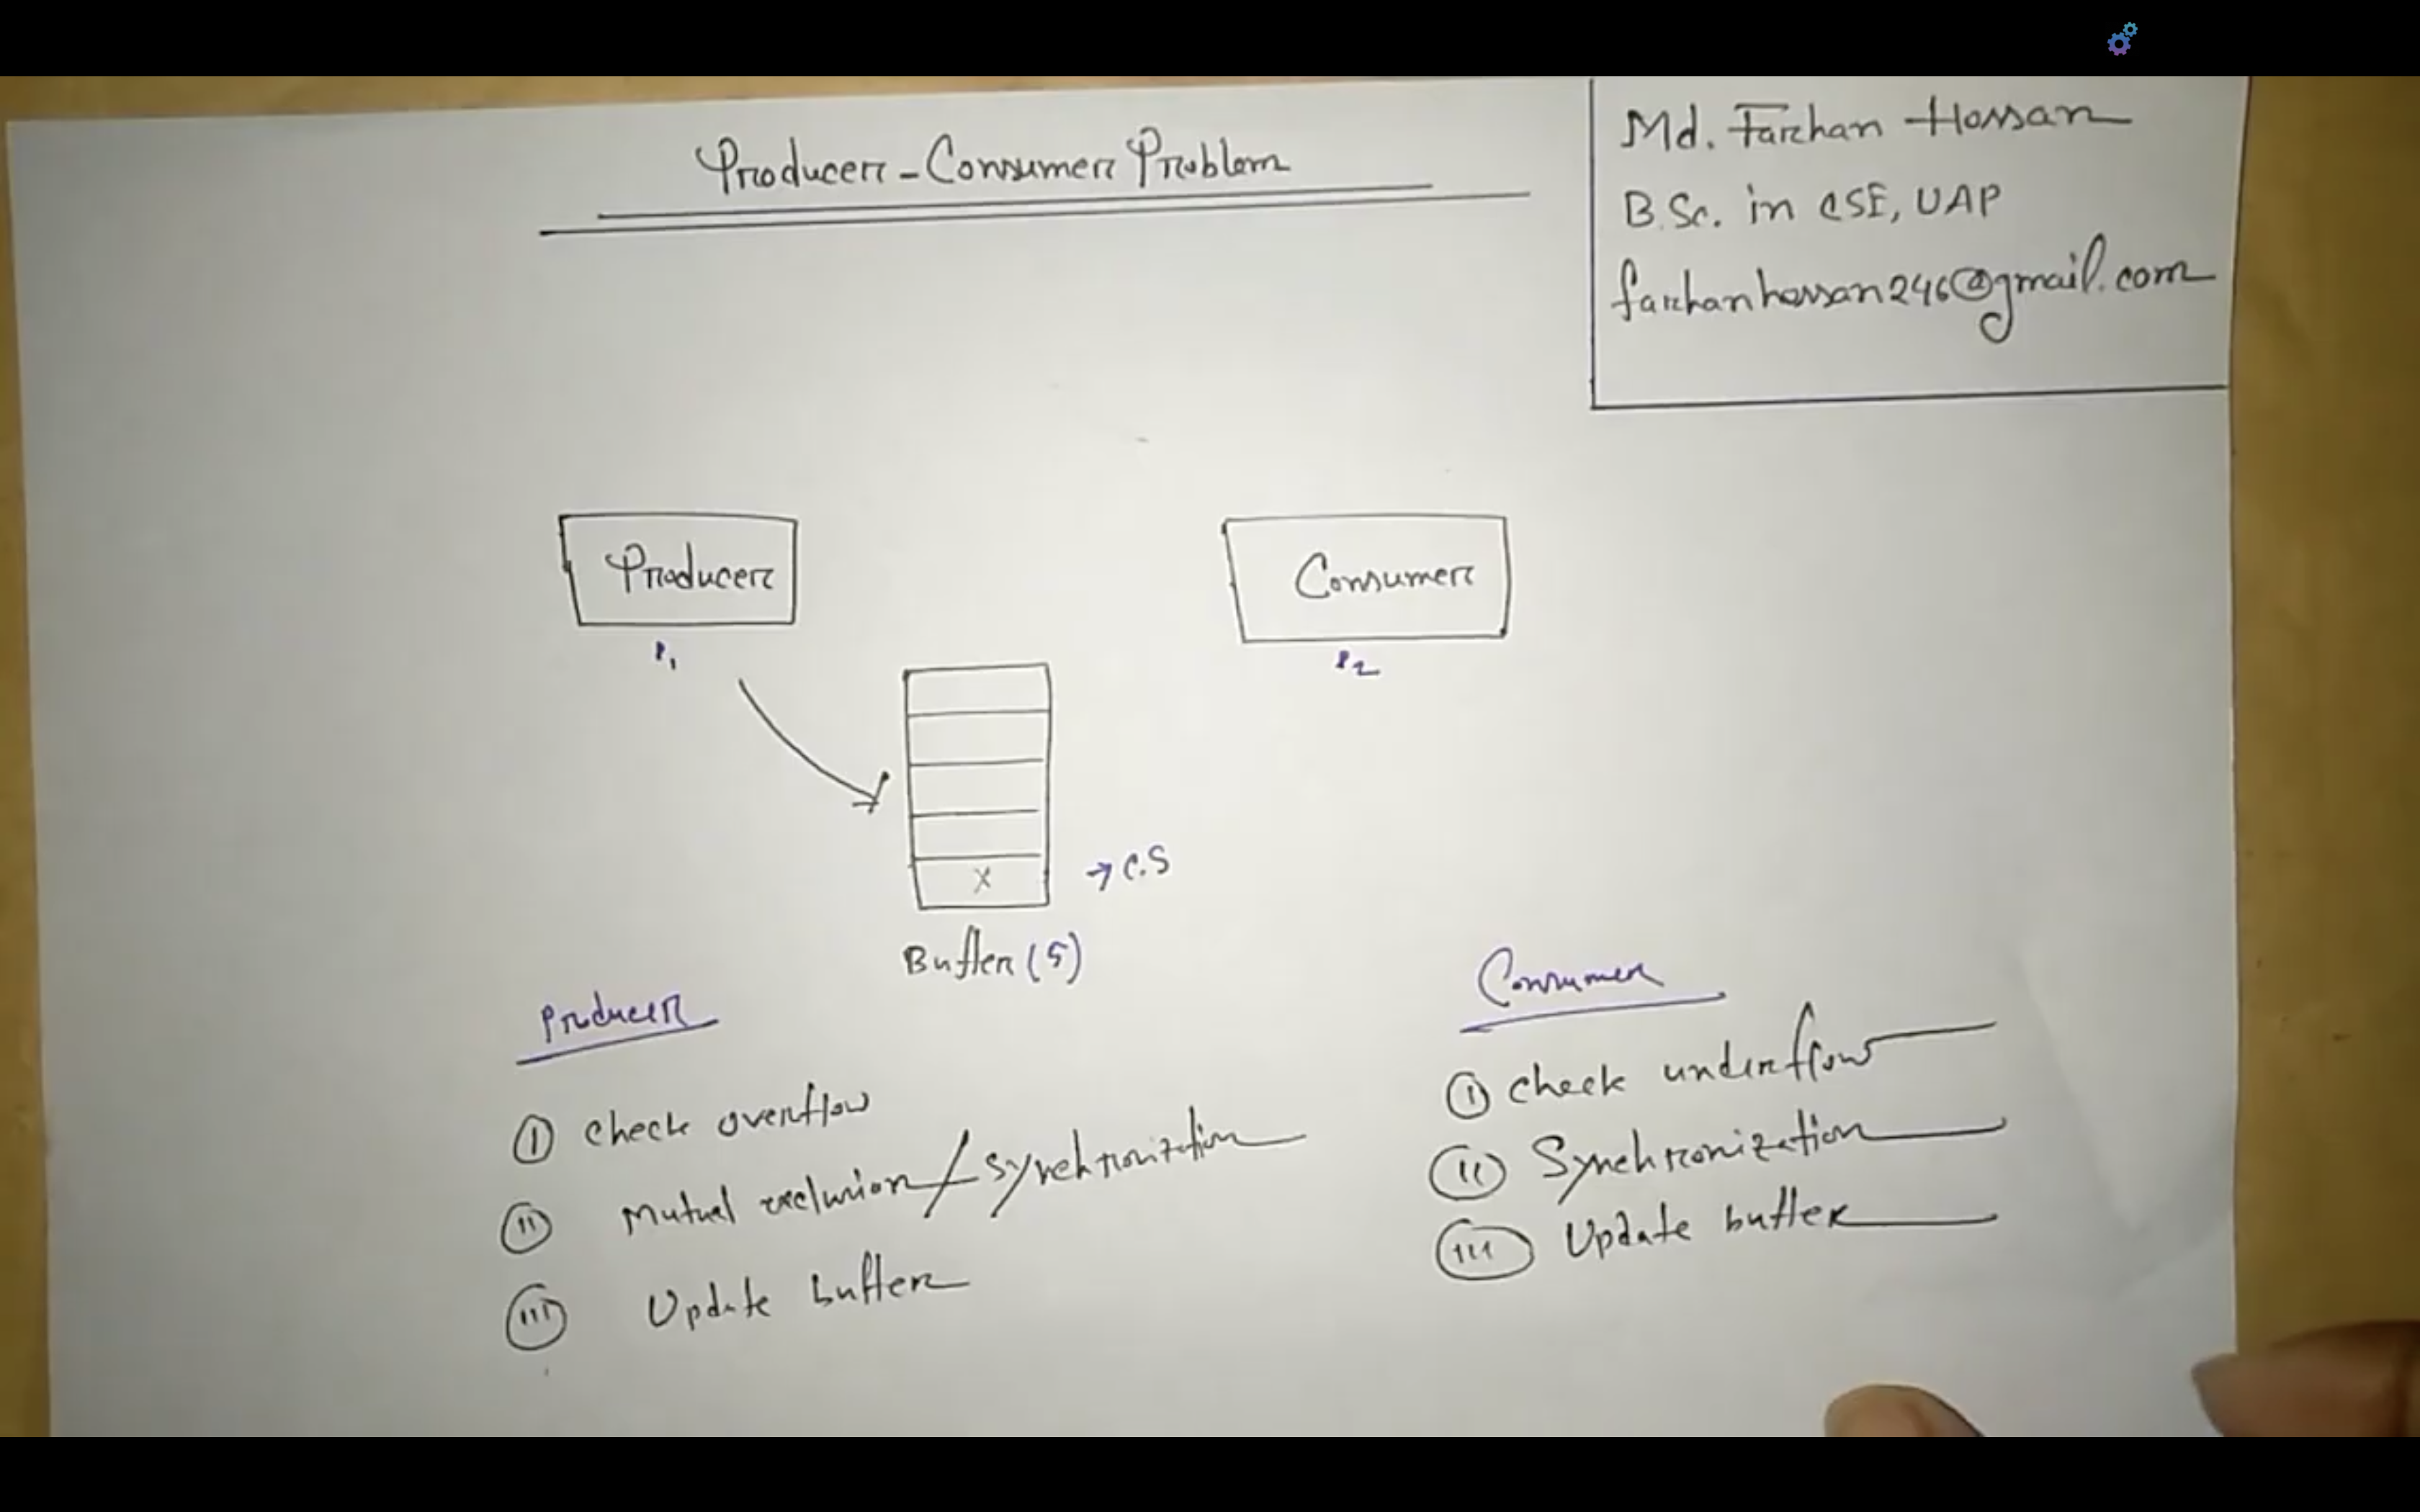 Producer-Consumer Problem
Md. Farhan Hossan
B.Sc. in CSE, UAP
farhanhossan246@gmail.com
Producer
Consumer
P1
P2
X
→ C.S
Buffer (5)
Producer
(i) Check overflow
(ii) Mutual exclusion / synchronization
(iii) Update buffer
Consumer
(i) Check underflow
(ii) Synchronization
(iii) Update buffer